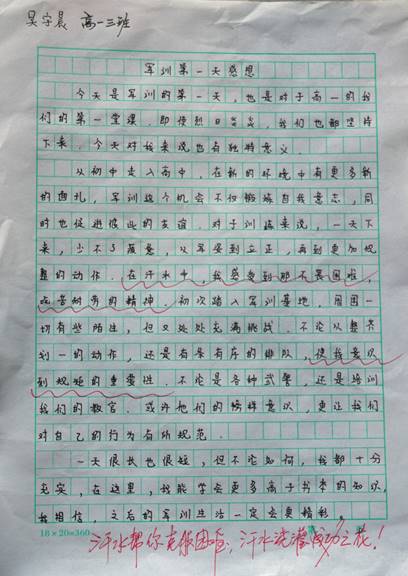 吴宇晨 高一三班
军训第一天感想
今天是军训的第一天，也是对于高一的我
们的第一堂课．即使烈日炎炎，我们也都坚持
下来．今天对我来说也有独特意义．
从初中走入高中，在新的环境中有更多新
的面孔，军训这个机会不仅锻炼自我意志，同
时也促进彼此的友谊．对于训练来说，一天下
来，少不了疲惫，从军姿到立正，再到更加规
整的动作．在汗水中，我感受到那不畏困难，
吃苦耐劳的精神．初次踏入军训基地，周围一
切有些陌生，但又处处充满挑战．不论从整齐
划一的动作，还是有条有序的排队，使我意识
到规矩的重要性．不论是各种武警，还是培训
我们的教官．或许他们的榜样意识，更让我们
对自己的行为有所规范．
一天很长也很短，但不论如何，我都十分
充实，在这里，我能学会更多离于书本的知识，
我相信，之后的军训生活一定会更精彩．
18×20=360
汗水帮你克服困难，汗水浇灌成功之花！